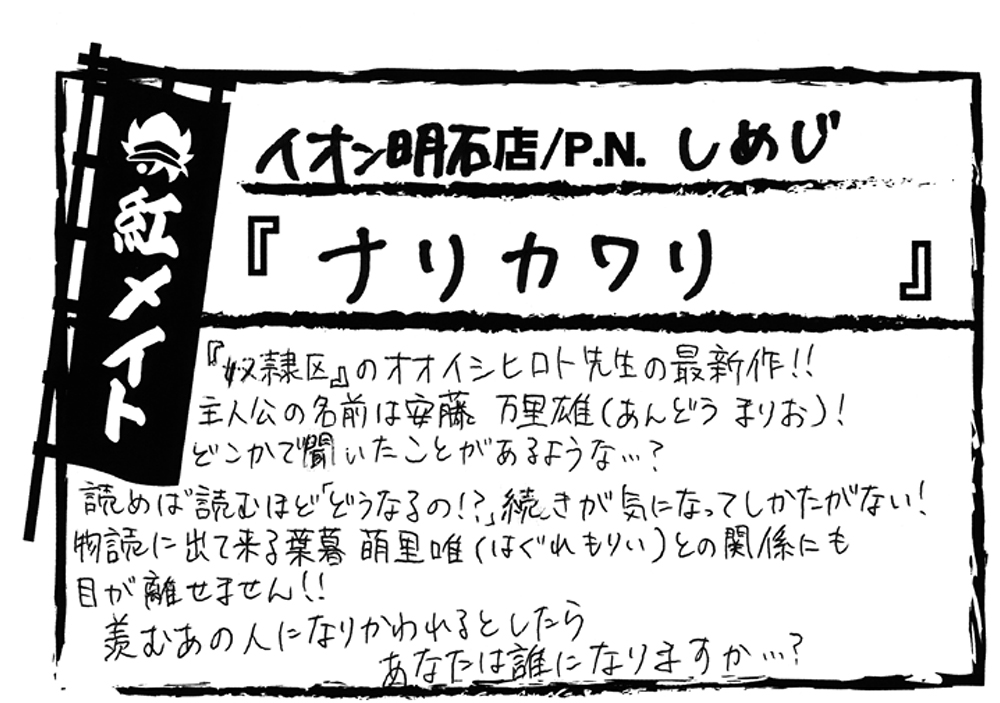 紅メイト
イオン明石店/P.N. しめじ
『ナリカワリ』
『奴隷区』のオオイシヒロト先生の最新作!!
主人公の名前は安藤 万里雄(あんどう まりお)!
どこかで聞いたことがあるような…?
読めば読むほど「どうなるの!?」続きが気になってしかたがない!
物読に出て来る葉暮 萌里唯(はぐれもりい)との関係にも
目が離せません!!
羨むあの人になりかわれるとしたら
あなたは誰になりますか…?